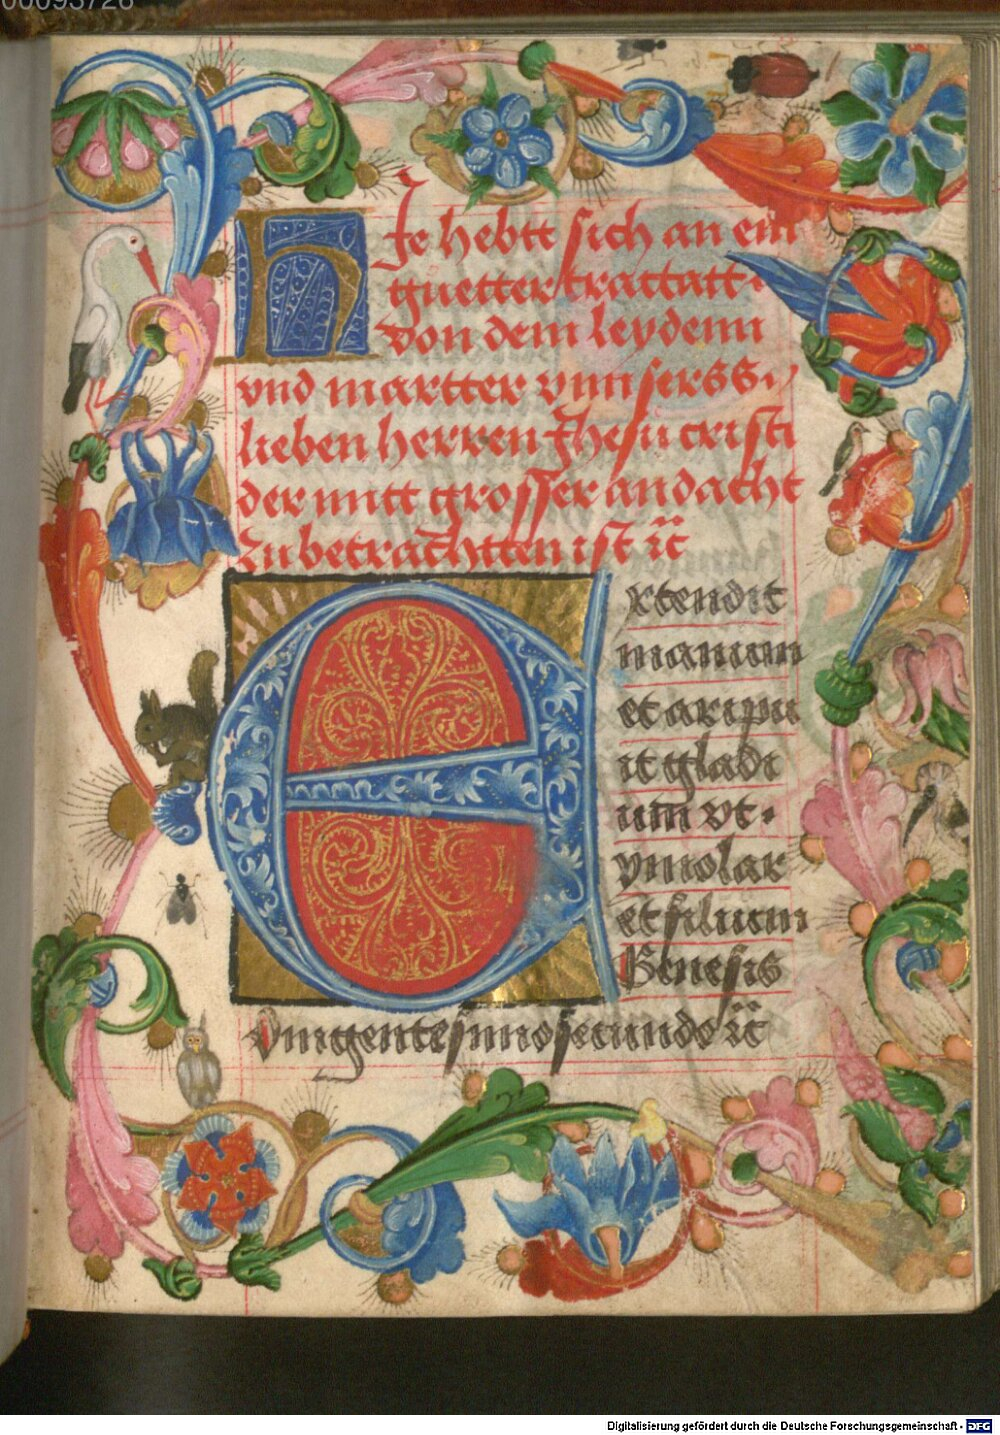 00093728
HJe hebtt sich an ein
guetter tracttatt.
von dem leydenn
vnd martter vnnserss.
lieben herren Jhesu cristi
der mitt grosser andacht
zu betrachtten ist ꝛc̃
Extendit
manum
et aripu
it gladi
um vt.
ymolar
et filium
Genesis
vingentesimo secundo ꝛc̃
Digitalisierung gefördert durch die Deutsche Forschungsgemeinschaft - DFG